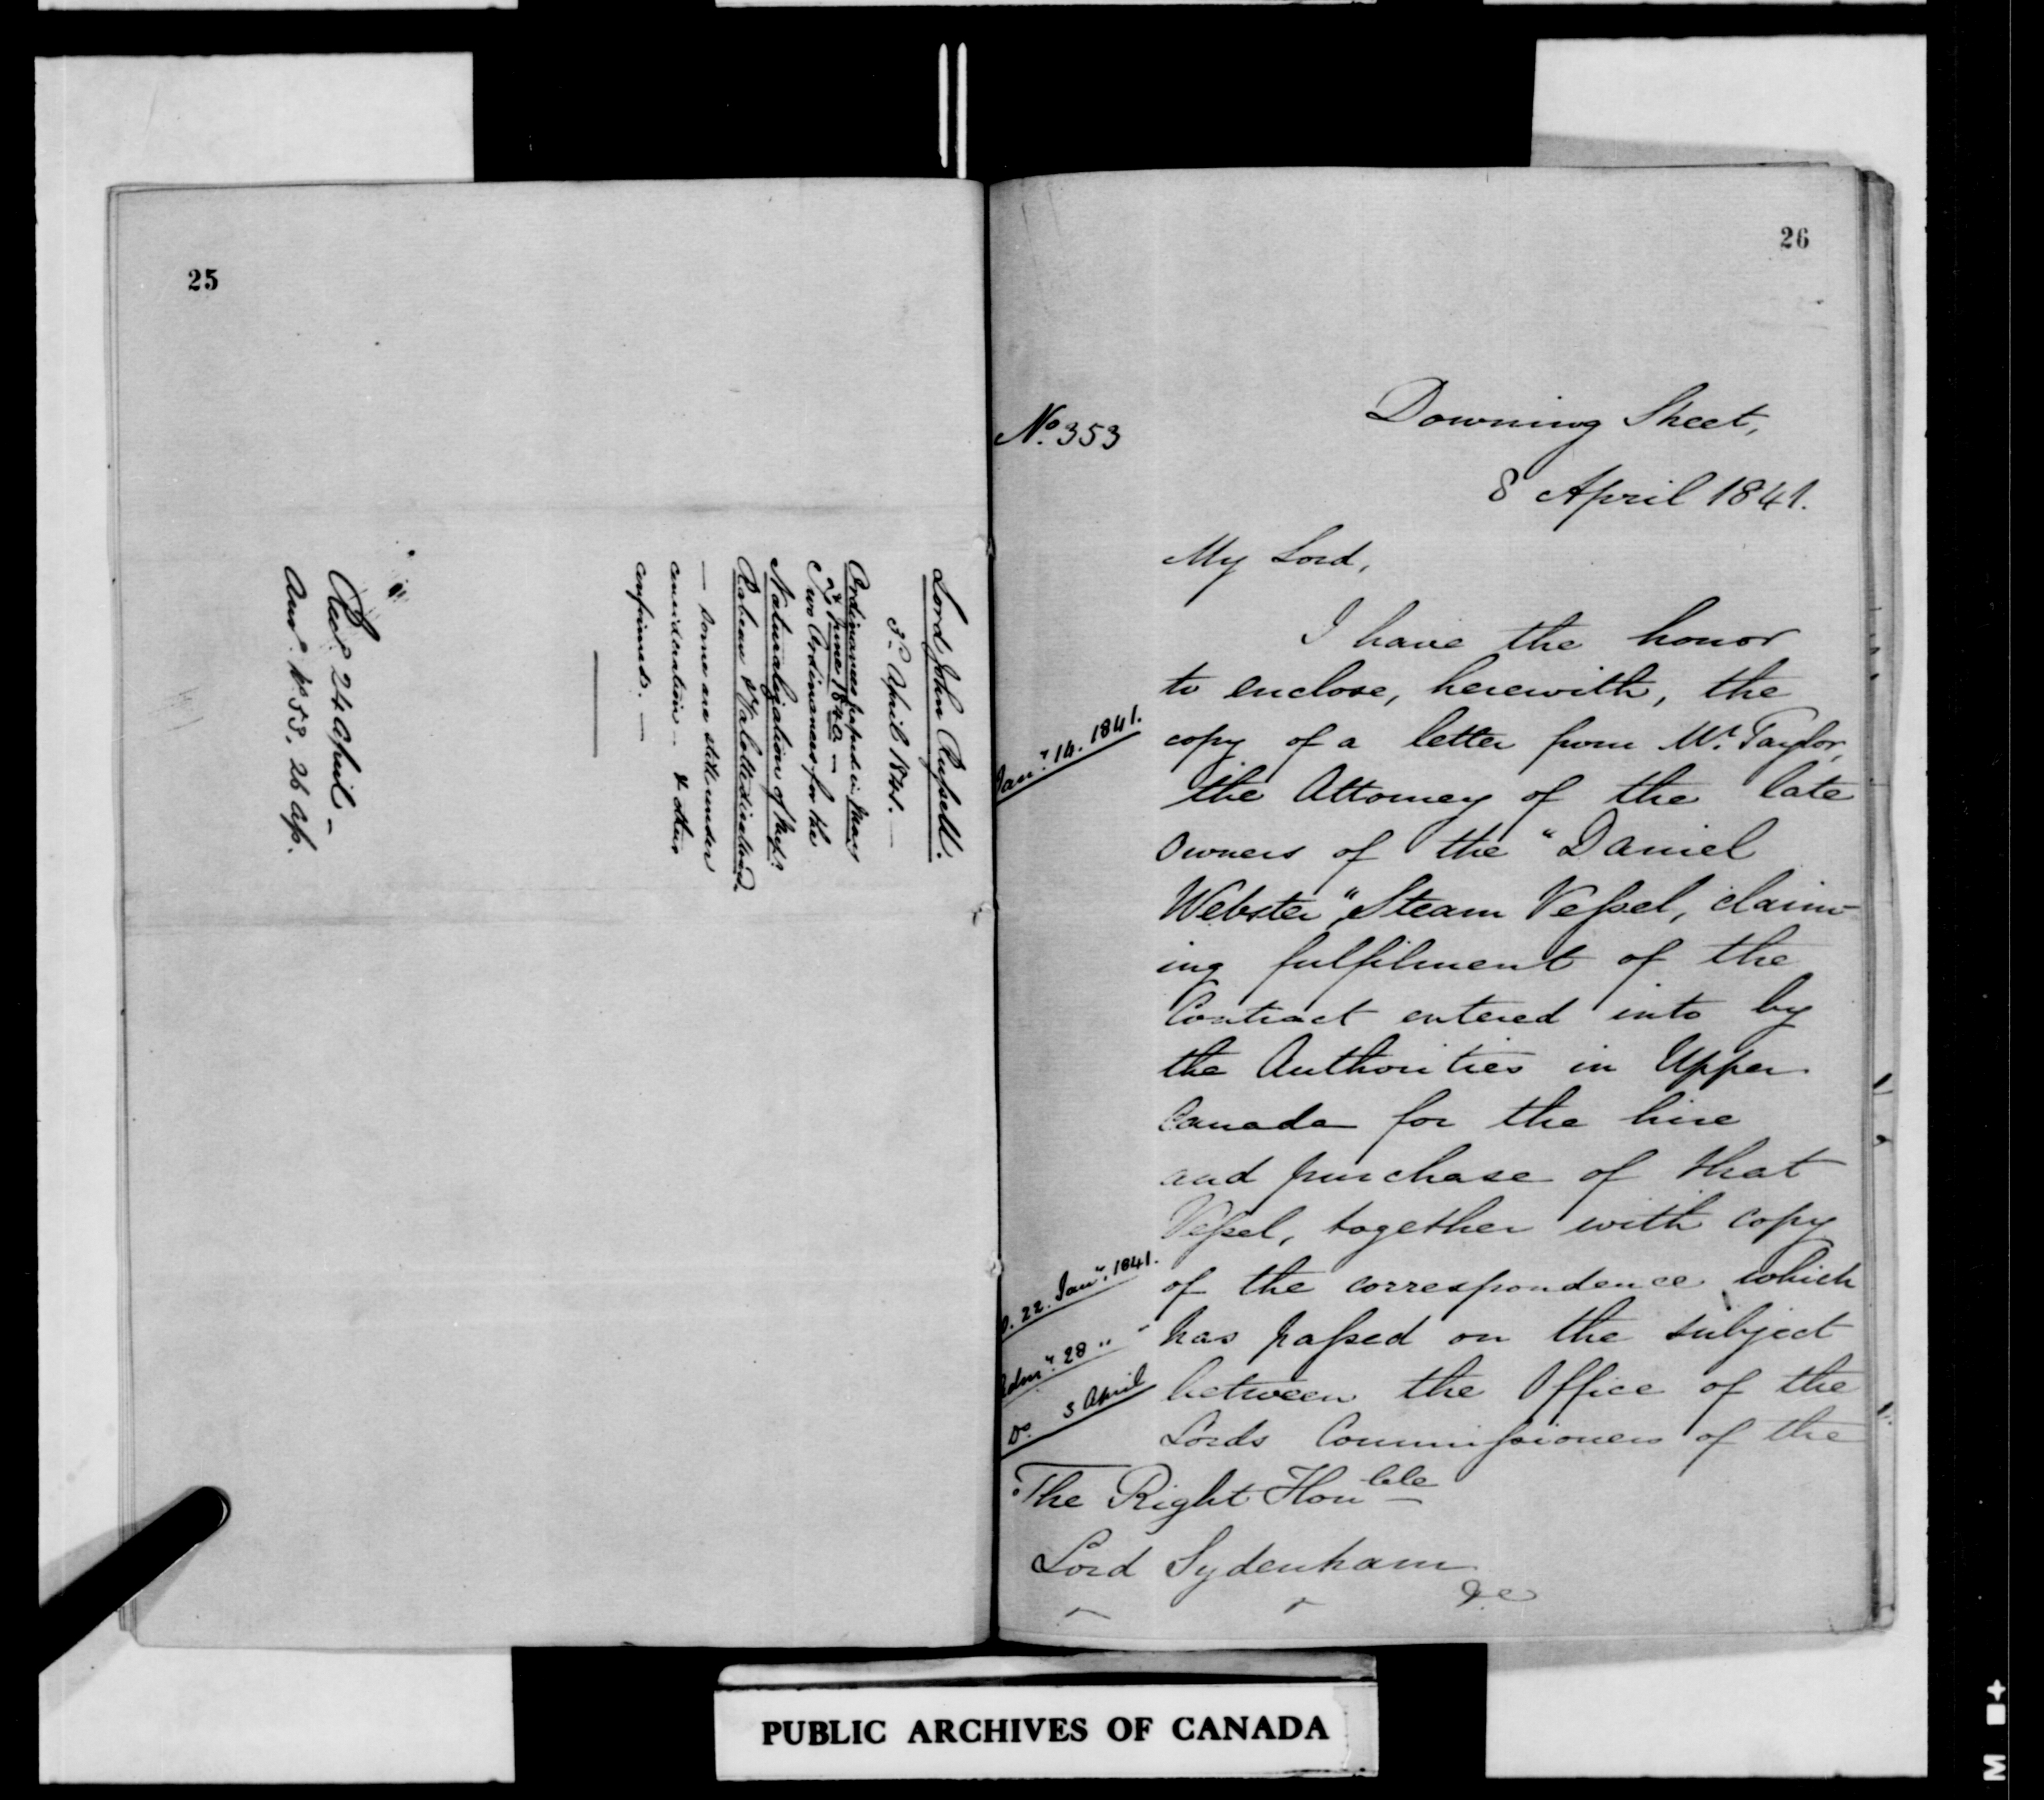 25
Lord John Russell.
3d. April 1841. —
Ordinances passed in May
& June 1840. —
Two Ordinances for the
Naturalization of Messrs.
— Some are still under
consideration — & others
confirmed. —
Recd. 24 April —
Answ. No. 53. 26 Ap.
26
No. 353
Downing Street,
8 April 1841.
My Lord,
I have the honor
to enclose, herewith, the
Jany. 14. 1841.
copy of a letter from Mr. Taylor,
the Attorney of the late
Owners of the "Daniel
Webster" Steam Vessel, claim-
ing fulfilment of the
Contract entered into by
the Authorities in Upper
Canada for the hire
and purchase of that
Vessel, together with copy
22. Jany. 1841.
of the correspondence which
Admy. 28 " "
has passed on the subject
Do. 3 April
between the Office of the
Lords Commissioners of the
The Right Honble
Lord Sydenham
&c
PUBLIC ARCHIVES OF CANADA
M